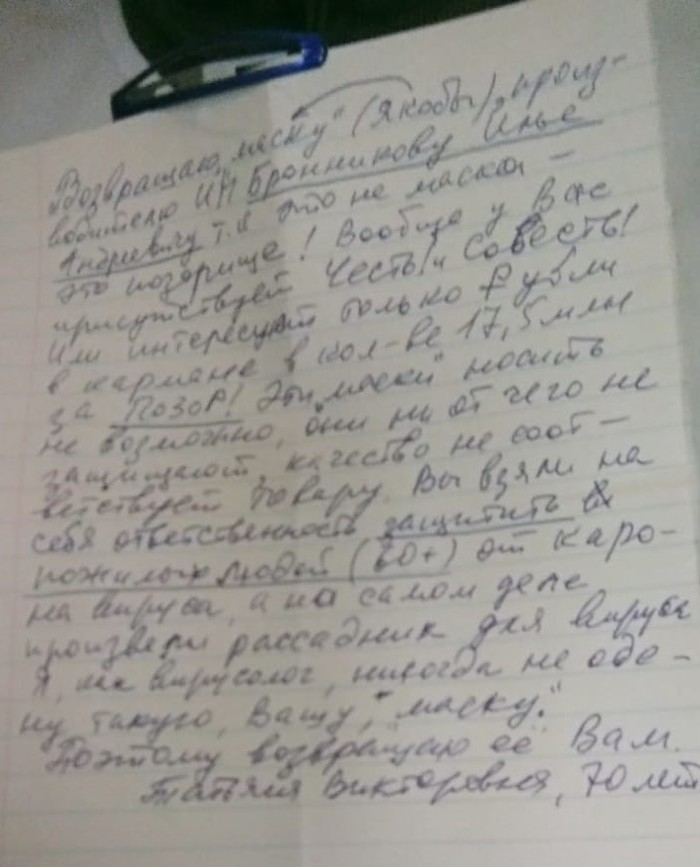 "Возвращаю "маску" (якобы) произ-
водителю ИП Бронникову Илье
Андреевичу т.к это не маска –
это позорище! Вообще у Вас
присутствует Честь! и Совесть!
Или интересуют только рубли
в кармане в кол-ве 17,5 млн
за Позор! Эти "маски" носить
не возможно, они ни от чего не
защищают, качество не соот-
ветствует товару. Вы взяли на
себя ответственность защитить
пожилых людей (60+) от каро-
на вируса, а на самом деле
произвели рассадник для вируса
Я, как вирусолог, никогда не оде-
ну такую, Вашу, "маску".
Поэтому возвращаю её Вам.
Татьяна Викторовна, 70 лет